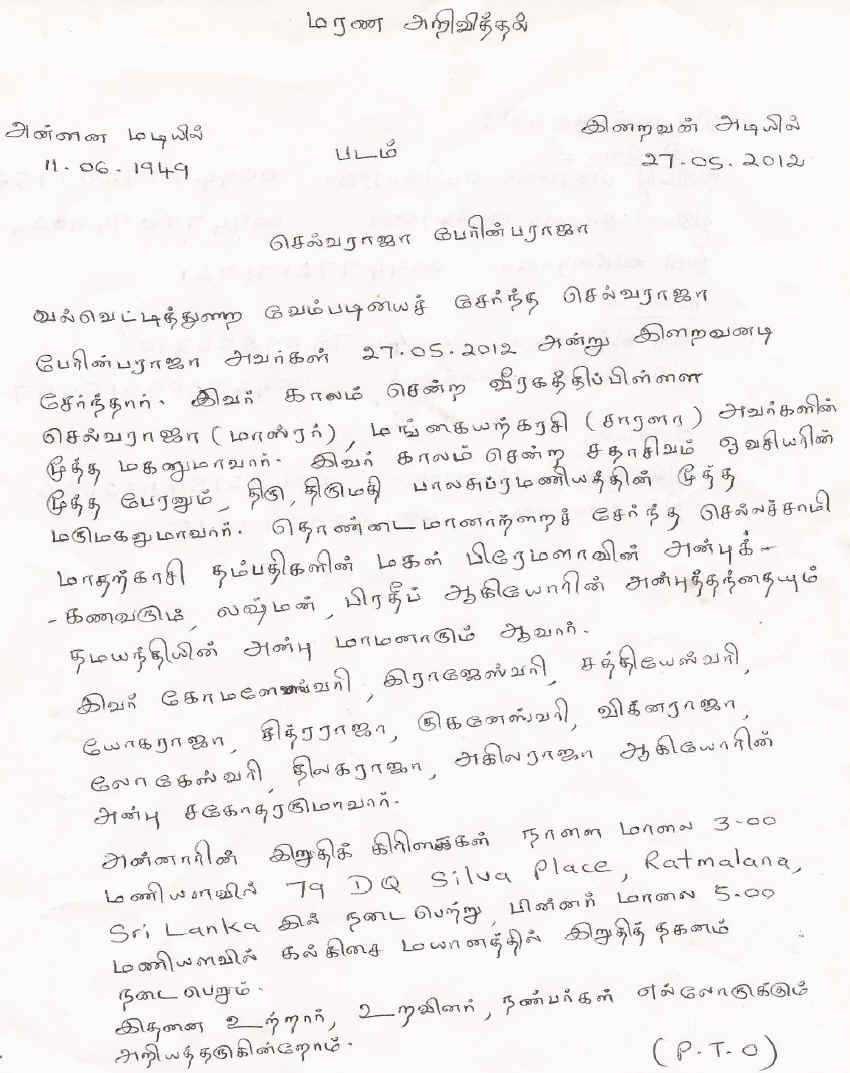 மரண அறிவித்தல்
அன்னை மடியில் இறைவன் அடியில்
11.06.1949 படம் 27.05.2012
செல்வராஜா பேரின்பராஜா
வல்வெட்டித்துறை வேம்படியைச் சேர்ந்த செல்வராஜா
பேரின்பராஜா அவர்கள் 27.05.2012 அன்று இறைவனடி
சேர்ந்தார். இவர் காலம் சென்ற வீரகத்திப்பிள்ளை
செல்வராஜா (மாஸ்ரர்), மங்கையற்கரசி (சாரளா) அவர்களின்
மூத்த மகனுமாவார். இவர் காலம் சென்ற சதாசிவம் ஓவசியரின்
மூத்த பேரனும், திரு, திருமதி பாலசுப்ரமணியத்தின் மூத்த
மருமகனுமாவார். தொண்டைமானாற்றைச் சேர்ந்த செல்லச்சாமி
மாதற்காசி தம்பதிகளின் மகள் பிரேமளாவின் அன்புக் -
- கணவரும், லஷ்மன், பிரதீப் ஆகியோரின் அன்புத்தந்தையும்
தமயந்தியின் அன்பு மாமனாரும் ஆவார்.
இவர் கோமளேஸ்வரி, இராஜேஸ்வரி, சத்தியேஸ்வரி,
யோகராஜா, சித்ரராஜா, கேனேஸ்வரி, விக்னராஜா,
லோகேஸ்வரி, திலகராஜா, அகிலராஜா ஆகியோரின்
அன்பு சகோதரருமாவார்.
அன்னாரின் இறுதிக் கிரியைகள் நாளை மாலை 3-00
மணியளவில் 79 DQ Silva Place, Ratmalana,
Sri Lanka இல் நடைபெற்று, பின்னர் மாலை 5.00
மணியளவில் கல்கிசை மயானத்தில் இறுதித் தகனம்
நடைபெறும்.
இதனை உற்றார், உறவினர், நண்பர்கள் எல்லோருக்கும்
அறியத்தருகின்றோம்.
(P.T.O)